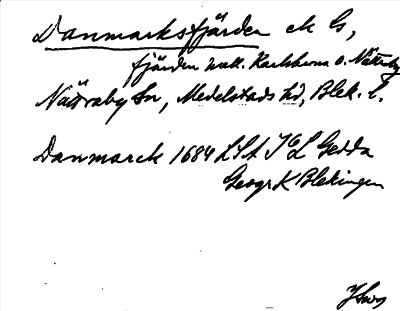 Danmarksfjärden ek G,
fjärden mell. Karlskrona o. Nättraby
Nättraby Sn, Medelstads hd, Blek. l.
Danmarck 1684 LSA Gedda
Geogr K Blekingen